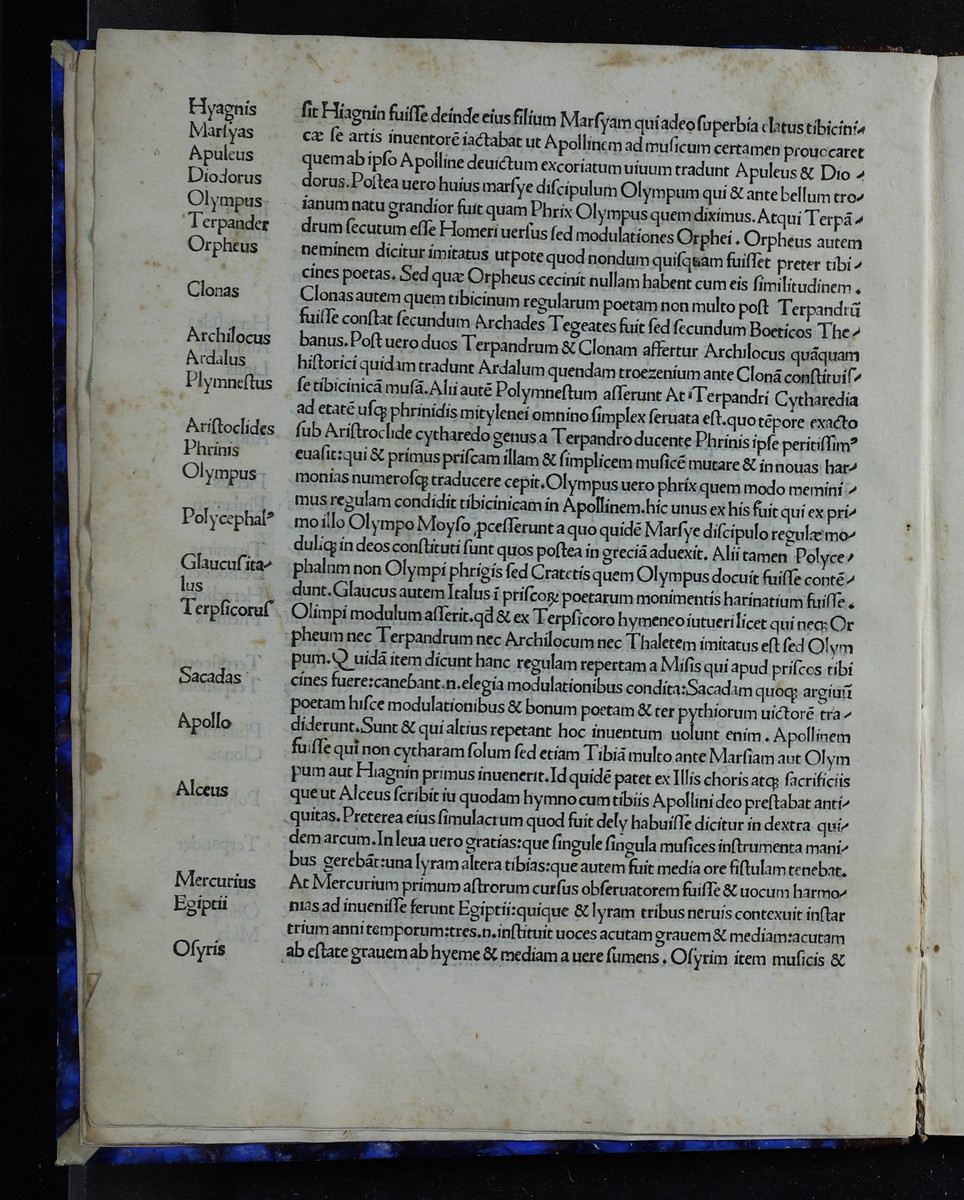 Hyagnis
Marſyas
Apuleus
Diodorus
Olympus
Terpander
Orpheus
Clonas
Archilocus
Ardalus
Plymneſtus
Ariſtoclides
Phrinis
Olympus
Polycephalꝰ
Glaucuſita-
lus
Terpſicoruſ
Sacadas
Apollo
Alceus
Mercurius
Egiptii
Oſyris
ſit Hiagnin fuiſſe deinde eius filium Marſyam qui adeo ſuperbia elatus tibicini-
cæ ſe artis inuentorē iactabat ut Apollinem ad muſicum certamen prouocaret
quem ab ipſo Apolline deuictum excoriatum uiuum tradunt Apuleus & Dio-
dorus. Poſtea uero huius marſye diſcipulum Olympum qui & ante bellum tro-
ianum natu grandior fuit quam Phrix Olympus quem diximus. Atqui Terpā-
drum ſecutum eſſe Homeri uerſus ſed modulationes Orphei. Orpheus autem
neminem dicitur imitatus utpote quod nondum quiſquam fuiſſet preter tibi-
cines poetas. Sed quæ Orpheus cecinit nullam habent cum eis ſimilitudinem.
Clonas autem quem tibicinum regularum poetam non multo poſt Terpandrū
fuiſſe conſtat ſecundum Archades Tegeates fuit ſed ſecundum Boeticos The-
banus. Poſt uero duos Terpandrum & Clonam affertur Archilocus quāquam
hiſtorici quidam tradunt Ardalum quendam troezenium ante Clonā conſtituiſ-
ſe tibicinicā muſā. Alii autē Polymneſtum aſſerunt At Terpandri Cytharedia
ad etatē uſq; phrinidis mitylenei omnino ſimplex ſeruata eſt. quo tēpore exacto
ſub Ariſtroclide cytharedo genus a Terpandro ducente Phrinis ipſe peritiſſimꝰ
euaſit: qui & primus priſcam illam & ſimplicem muſicē mutare & in nouas har-
monias numeroſq; traducere cepit. Olympus uero phrix quem modo memini-
mus regulam condidit tibicinicam in Apollinem. hic unus ex his fuit qui ex pri-
mo illo Olympo Moyſo ꝓceſſerunt a quo quidē Marſye diſcipulo regulæ mo-
duliq; in deos conſtituti ſunt quos poſtea in greciā aduexit. Alii tamen Polyce-
phalum non Olympi phrigis ſed Cratetis quem Olympus docuit fuiſſe contē-
dunt. Glaucus autem Italus ī priſcoꝝ poetarum monimentis harinatium fuiſſe.
Olimpi modulum aſſerit. qd & ex Terpſicoro hymeneo iutueri licet qui neq; Or
pheum nec Terpandrum nec Archilocum nec Thaletem imitatus eſt ſed Olym
pum. Quidā item dicunt hanc regulam repertam a Miſis qui apud priſcos tibi
cines fuere: canebant .n. elegia modulationibus condita: Sacadam quoq; argiuū
poetam hiſce modulationibus & bonum poetam & ter pythiorum uictorē tra-
diderunt. Sunt & qui altius repetant hoc inuentum uolunt enim. Apollinem
fuiſſe qui non cytharam ſolum ſed etiam Tibiā multo ante Marſiam aut Olym
pum aut Hiagnin primus inuenerit. Id quidē patet ex Illis choris atq; ſacrificiis
que ut Alceus ſcribit iu quodam hymno cum tibiis Apollini deo preſtabat anti-
quitas. Preterea eius ſimulacrum quod fuit dely habuiſſe dicitur in dextra qui-
dem arcum. In leua uero gratias: que ſingule ſingula muſices inſtrumenta mani-
bus gerebāt: una lyram altera tibias: que autem fuit media ore fiſtulam tenebat.
At Mercurium primum aſtrorum curſus obſeruatorem fuiſſe & uocum harmo-
nias ad inueniſſe ferunt Egiptii: quique & lyram tribus neruis contexuit inſtar
trium anni temporum: tres .n. inſtituit uoces acutam grauem & mediam: acutam
ab eſtate grauem ab hyeme & mediam a uere ſumens. Oſyrim item muſicis &